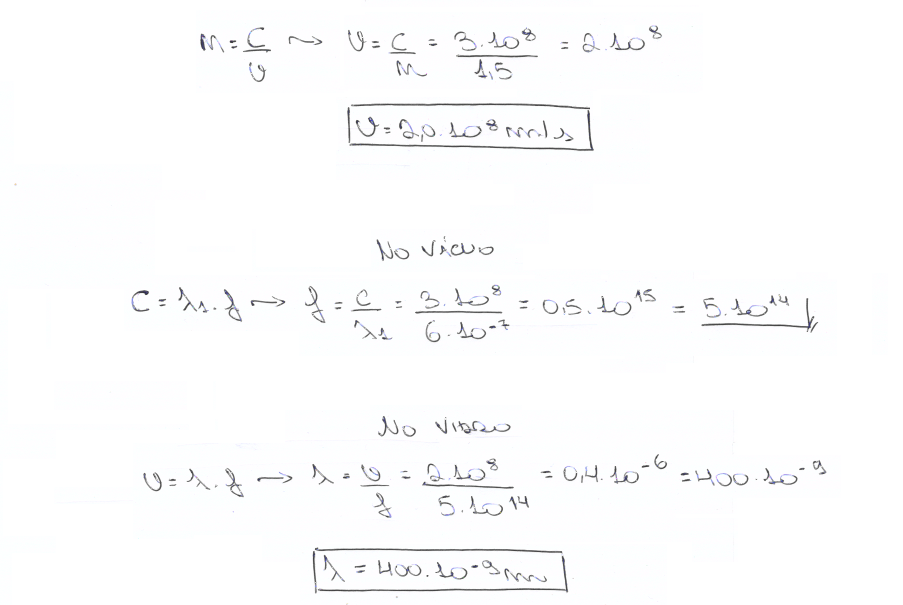 n = c/v ⤳ v = c/n = 3.10⁸/1,5 = 2.10⁸
v = 2,0.10⁸ m/s
No VÁCUO
C = λ₁.f → f = c/λ₁ = 3.10⁸/6.10⁻⁷ = 0,5.10¹⁵ = 5.10¹⁴
No VIDRO
v = λ.f → λ = v/f = 2.10⁸/5.10¹⁴ = 0,4.10⁻⁶ = 400.10⁻⁹
λ = 400.10⁻⁹ m